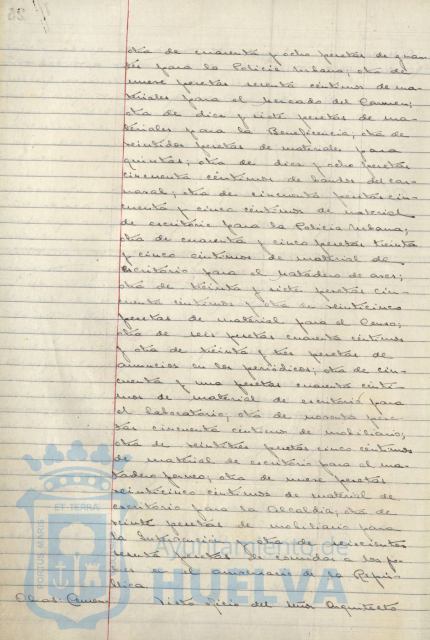 otra de cuarenta y ocho pesetas de guan-
tes para la Policía Urbana; otra de
nueve pesetas sesenta céntimos de ma-
teriales para el Mercado del Carmen;
otra de diez y siete pesetas de ma-
teriales para la Beneficencia; otra de
veintidos pesetas de materiales para
quintas; otra de diez y ocho pesetas
cincuenta céntimos de bandos del car-
naval; otra de cincuenta pesetas cin-
cuenta y cinco céntimos de material
de escritorio para la Policía Urbana;
otra de cuarenta y cinco pesetas treinta
y cinco céntimos de material de
escritorio para el matadero de aves;
otra de treinta y siete pesetas cin-
cuenta céntimos y otra de veinticinco
pesetas de material para el Censo;
otra de seis pesetas cuarenta céntimos
y otra de treinta y tres pesetas de
anuncios en los periódicos; otra de cin-
cuenta y una pesetas cuarenta cénti-
mos de material de escritorio para
el laboratorio; otra de noventa pese-
tas cincuenta céntimos de mobiliario;
otra de veintitres pesetas cinco céntimos
de material de escritorio para el ma-
tadero; otra de nueve pesetas
veinticinco céntimos de material de
escritorio para la Alcaldía; otra de
veinte pesetas de mobiliario para
la Intervención y otra de seiscientas
sesenta pesetas de comidas a los po-
bres en el aniversario de la Repú-
blica.
Visto oficio del Señor Arquitecto
ET TERRA
PORTUS MARIS
Ayuntamiento de
HUELVA